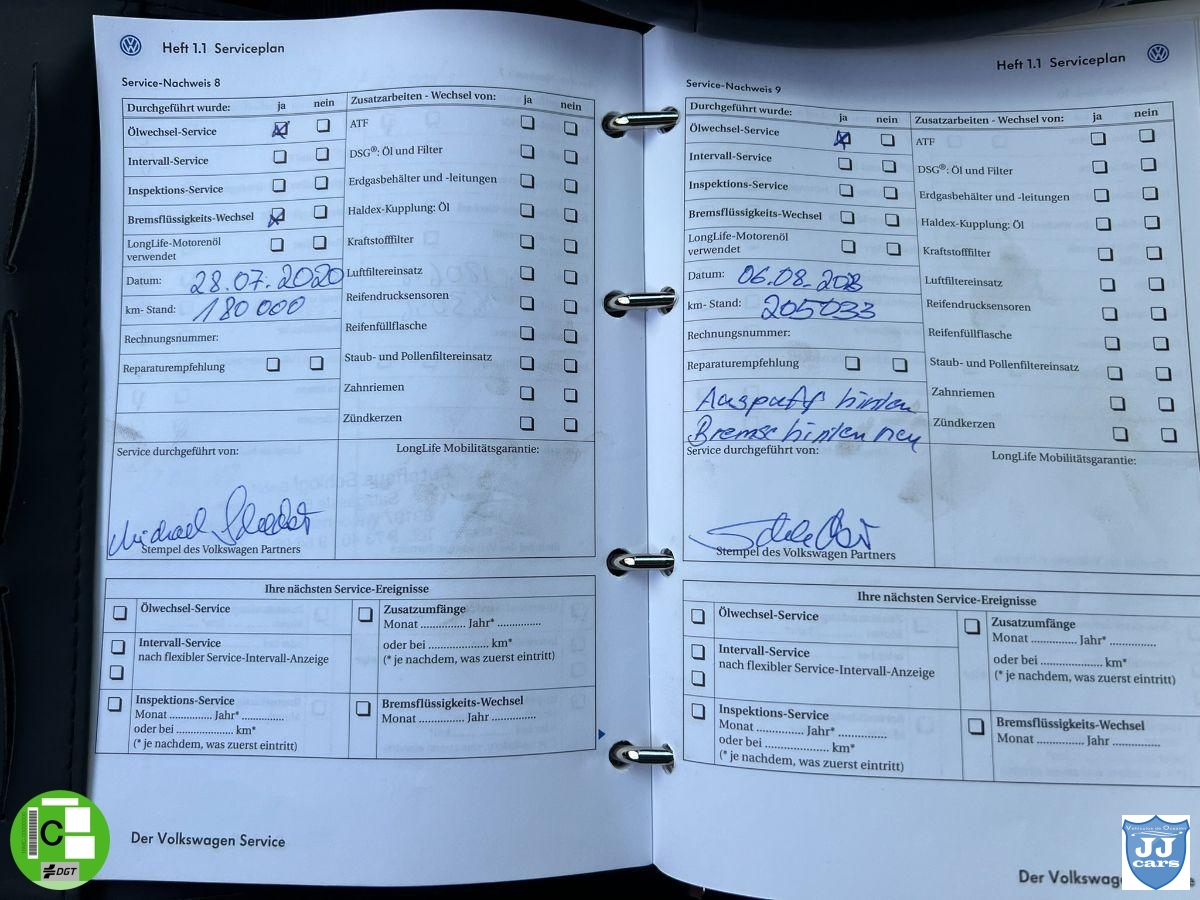 Heft 1.1 Serviceplan
Service-Nachweis 8
Durchgeführt wurde: ja nein
Ölwechsel-Service
Intervall-Service
Inspektions-Service
Bremsflüssigkeits-Wechsel
LongLife-Motorenöl
verwendet
Datum: 28.07.2020
km- Stand: 180 000
Rechnungsnummer:
Reparaturempfehlung
Zusatzarbeiten - Wechsel von: ja nein
ATF
DSG®: Öl und Filter
Erdgasbehälter und -leitungen
Haldex-Kupplung: Öl
Kraftstofffilter
Luftfiltereinsatz
Reifendrucksensoren
Reifenfüllflasche
Staub- und Pollenfiltereinsatz
Zahnriemen
Zündkerzen
Service durchgeführt von:
Michael
Stempel des Volkswagen Partners
LongLife Mobilitätsgarantie:
Ihre nächsten Service-Ereignisse
Ölwechsel-Service
Intervall-Service
nach flexibler Service-Intervall-Anzeige
Inspektions-Service
Monat ............... Jahr* ...............
oder bei ........................ km*
(* je nachdem, was zuerst eintritt)
Zusatzumfänge
Monat ............... Jahr* ...............
oder bei ........................ km*
(* je nachdem, was zuerst eintritt)
Bremsflüssigkeits-Wechsel
Monat ............... Jahr ...............
Der Volkswagen Service
Heft 1.1 Serviceplan
Service-Nachweis 9
Durchgeführt wurde: ja nein
Ölwechsel-Service
Intervall-Service
Inspektions-Service
Bremsflüssigkeits-Wechsel
LongLife-Motorenöl
verwendet
Datum: 06.08.
km- Stand: 205033
Rechnungsnummer:
Reparaturempfehlung
Auspuff hinten
Bremse hinten neu
Zusatzarbeiten - Wechsel von: ja nein
ATF
DSG®: Öl und Filter
Erdgasbehälter und -leitungen
Haldex-Kupplung: Öl
Kraftstofffilter
Luftfiltereinsatz
Reifendrucksensoren
Reifenfüllflasche
Staub- und Pollenfiltereinsatz
Zahnriemen
Zündkerzen
Service durchgeführt von:
Stempel des Volkswagen Partners
LongLife Mobilitätsgarantie:
Ihre nächsten Service-Ereignisse
Ölwechsel-Service
Intervall-Service
nach flexibler Service-Intervall-Anzeige
Inspektions-Service
Monat ............... Jahr* ...............
oder bei ........................ km*
(* je nachdem, was zuerst eintritt)
Zusatzumfänge
Monat ............... Jahr* ...............
oder bei ........................ km*
(* je nachdem, was zuerst eintritt)
Bremsflüssigkeits-Wechsel
Monat ............... Jahr ...............
Der Volkswag
C
DGT
JJ
cars